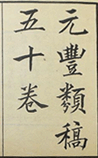 元豐類稿
五十卷